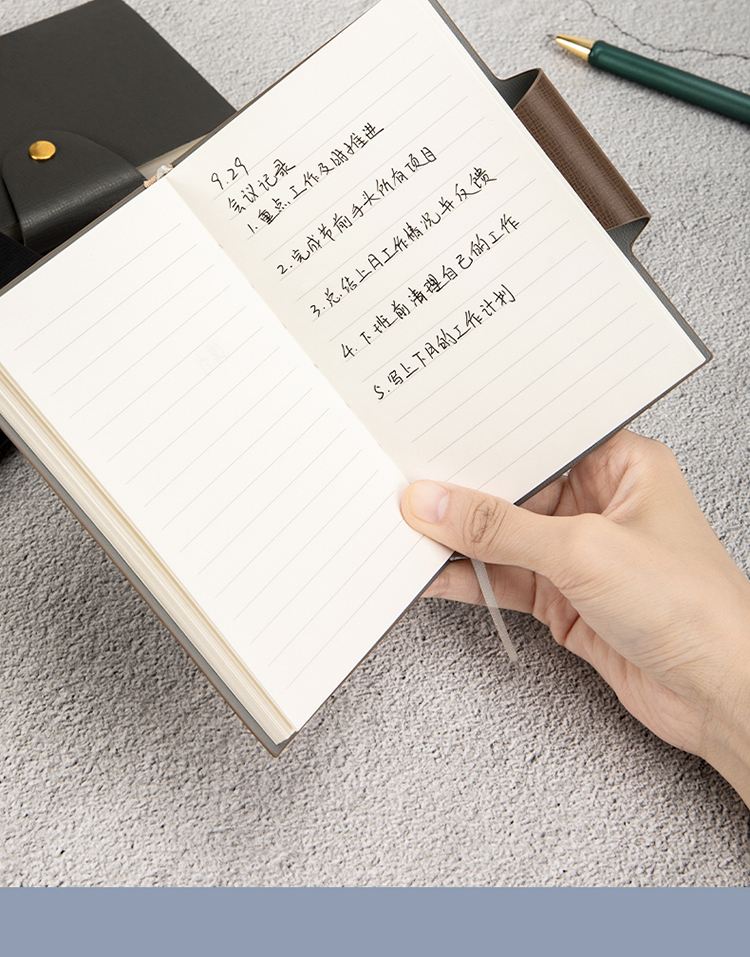 9.29
会议记录
1.重点工作及时推进
2.完成节前手头所有项目
3.总结上月工作情况并反馈
4.下班前清理自己的工作
5.写上下月的工作计划